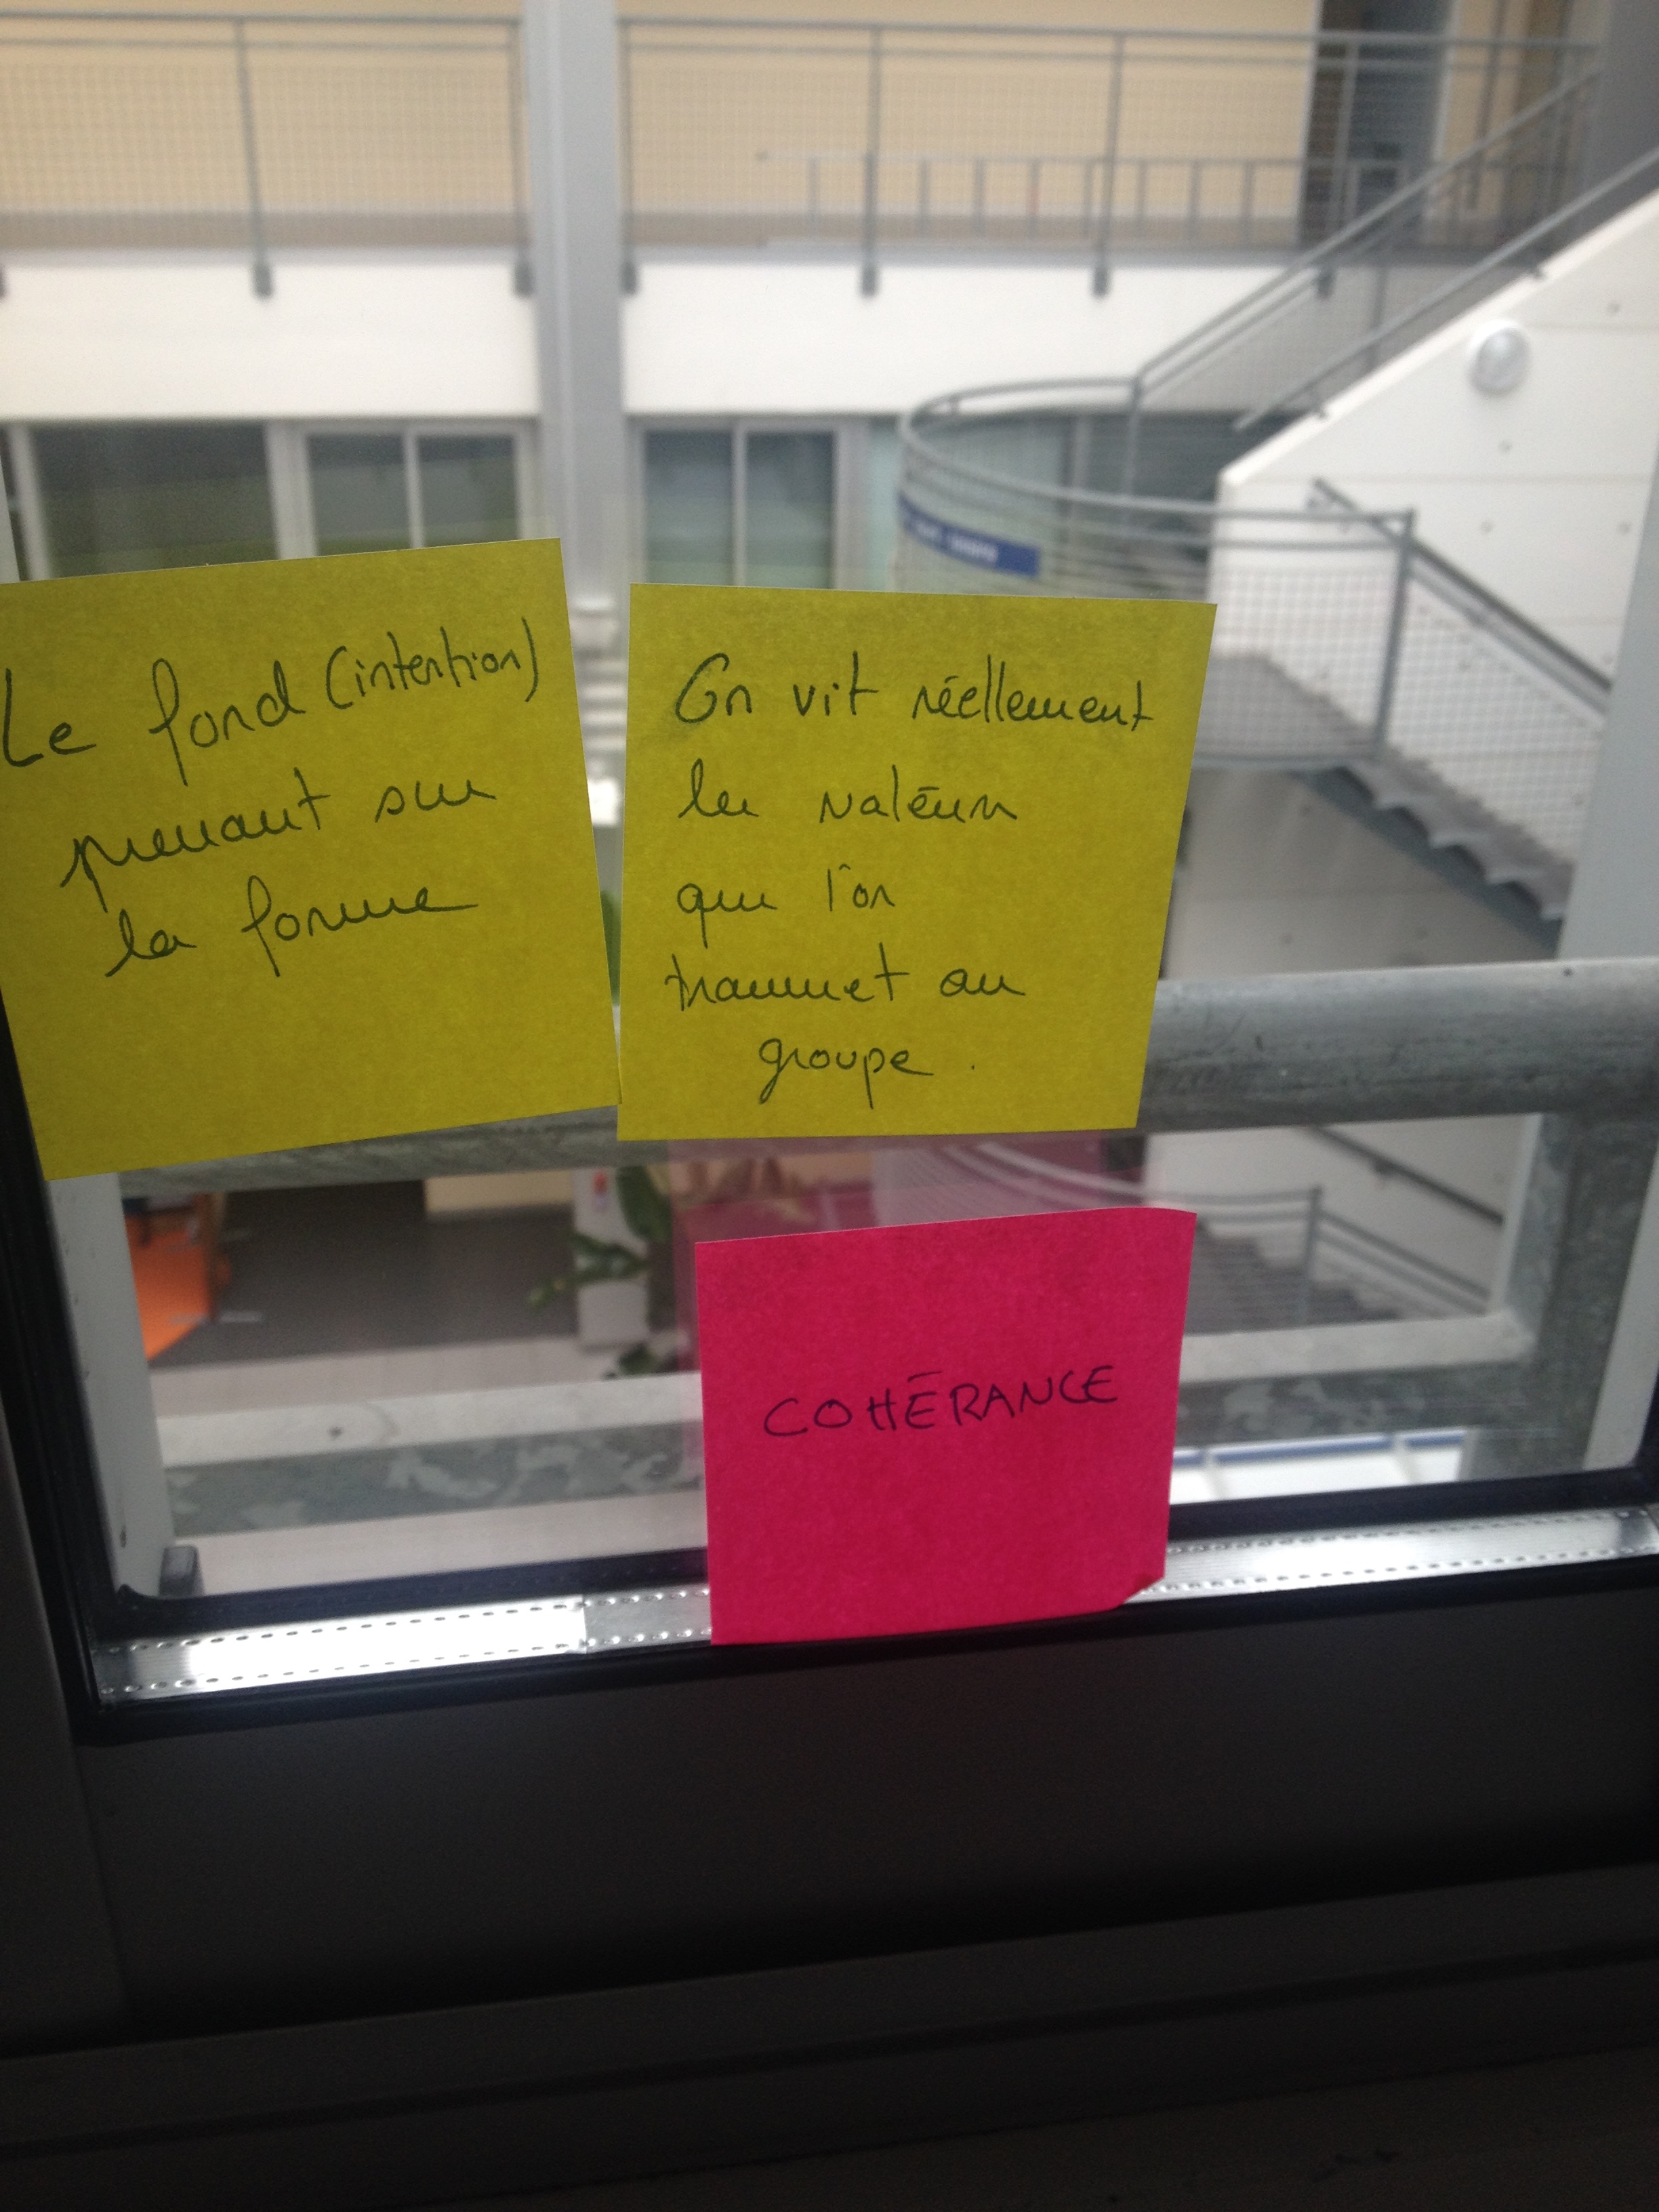 Le fond (intention)
prenant sur
la forme
On vit réellement
les valeurs
que l'on
transmet au
groupe.
COHÉRANCE